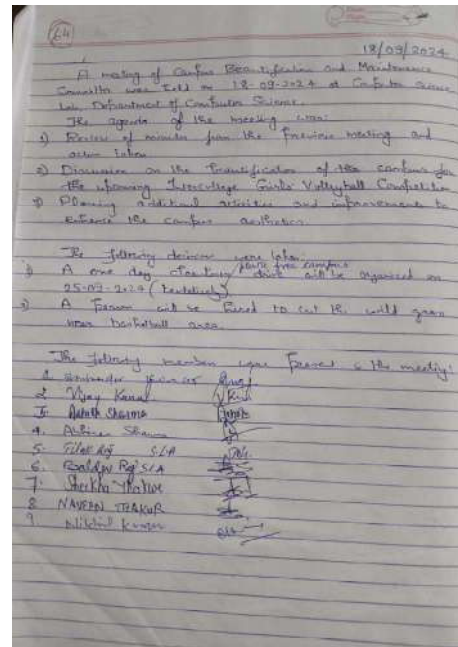 64
18/09/2024
A meeting of Campus Beautification and Maintenance
Committee was held on 18-09-2024 at Computer Science
Lab, Department of Computer Science.
The agenda of the meeting was:
1) Review of minutes from the previous meeting and
action taken
2) Discussion on the Beautification of the campus for
the upcoming Intercollege Girls' Volleyball Competition
3) Planning additional activities and improvements to
enhance the campus aesthetics.
The following decisions were taken:
1) A one day cleanliness drive will be organised on
25-09-2024 (tentatively)
2) A person will be hired to cut the wild grass
near basketball area.
The following members were present in the meeting:
1. Kumar
2. Vijay
3. Sharma
4. Abhinav Sharma
5. Tilak Raj SLA
6. Baldev Raj SLA
7. Shikha Thakur
8 NAVEEN THAKUR
9. Nikhil Kumar